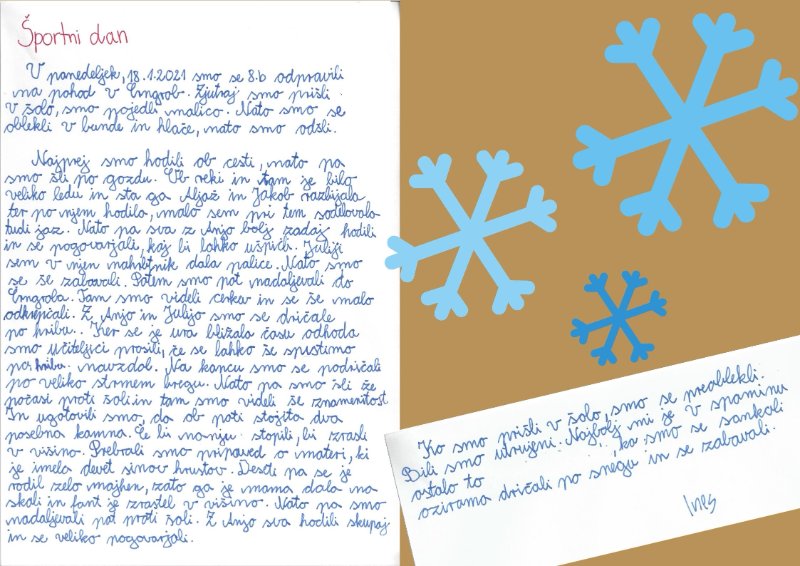 Športni dan
V ponedeljek, 18.1.2021 smo se 8.b odpravili
na pohod v Crngrob. Zjutraj smo prišli
v šolo, smo pojedli malico. Nato smo se
oblekli v bunde in hlače, nato smo odšli.
Najprej smo hodili ob cesti, nato pa
smo šli po gozdu. Ob reki in tam je bilo
veliko ledu in sta ga Aljaž in Jakob razbijala
ter po njem hodila, malo sem pri tem sodelovala
tudi jaz. Nato pa sva z Anjo bolj zadaj hodili
in se pogovarjali, kaj bi lahko ušpičili. Juliji
sem v njen nahrbtnik dala palice. Nato smo
se še zabavali. Potem smo pot nadaljevali do
Crngroba. Tam smo videli cerkev in se še malo
odkrepčali. Z Anjo in Julijo smo se dričale
po hribu. Ker se je ura bližala času odhoda
smo učiteljici prosili, če se lahko še spustimo
po hribu navzdol. Na koncu smo se podričali
po veliko strmem bregu. Nato pa smo šli že
počasi proti šoli in tam smo videli še znamenitost
In ugotovili smo, da ob poti stojita dva
posebna kamna. Če bi na nju stopili, bi zrasli
v višino. Prebrali smo pripoved o materi, ki
je imela devet sinov hrustov. Deseti pa se je
rodil zelo majhen, zato ga je mama dala na
skali in fant je zrastel v višino. Nato pa smo
nadaljevali pot proti šoli. Z Anjo sva hodili skupaj
in se veliko pogovarjali.
Ko smo prišli v šolo, smo se preoblekli.
Bili smo utrujeni. Najbolj mi je v spominu
ostalo to , ko smo se sankali
oziroma dričali po snegu in se zabavali.
Ines